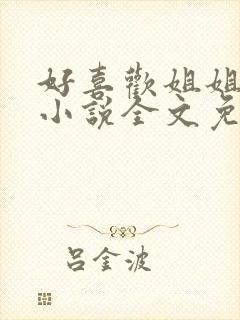 好喜歡姐姐
小說全文免
呂金波